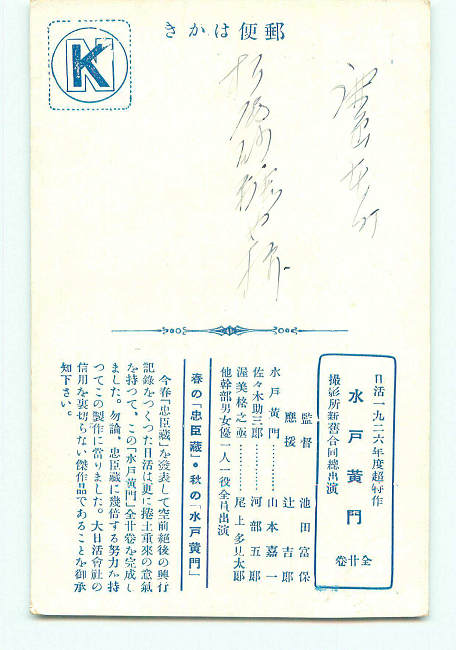 きかは便郵
NK
日活一九二六年度超特作
水戸黄門 全廿卷
撮影所新舊合同總出演
監督 池田富保
應援 辻吉郎
水戸黄門………山本嘉一
佐々木助三郎………河部五郎
渥美格之亟………尾上多見太郎
他幹部男女優一人一役全員出演
春の「忠臣藏」・秋の「水戸黄門」
今春「忠臣藏」を發表して空前絶後の興行
記錄をつくつた日活は更に捲土重來の意氣
を持つて、この「水戸黄門」全廿卷を完成し
ました。勿論、忠臣藏に幾倍する努力を持
つてこの製作に當りました。大日活會社の
信用を裏切らない傑作品であることを御承
知下さい。